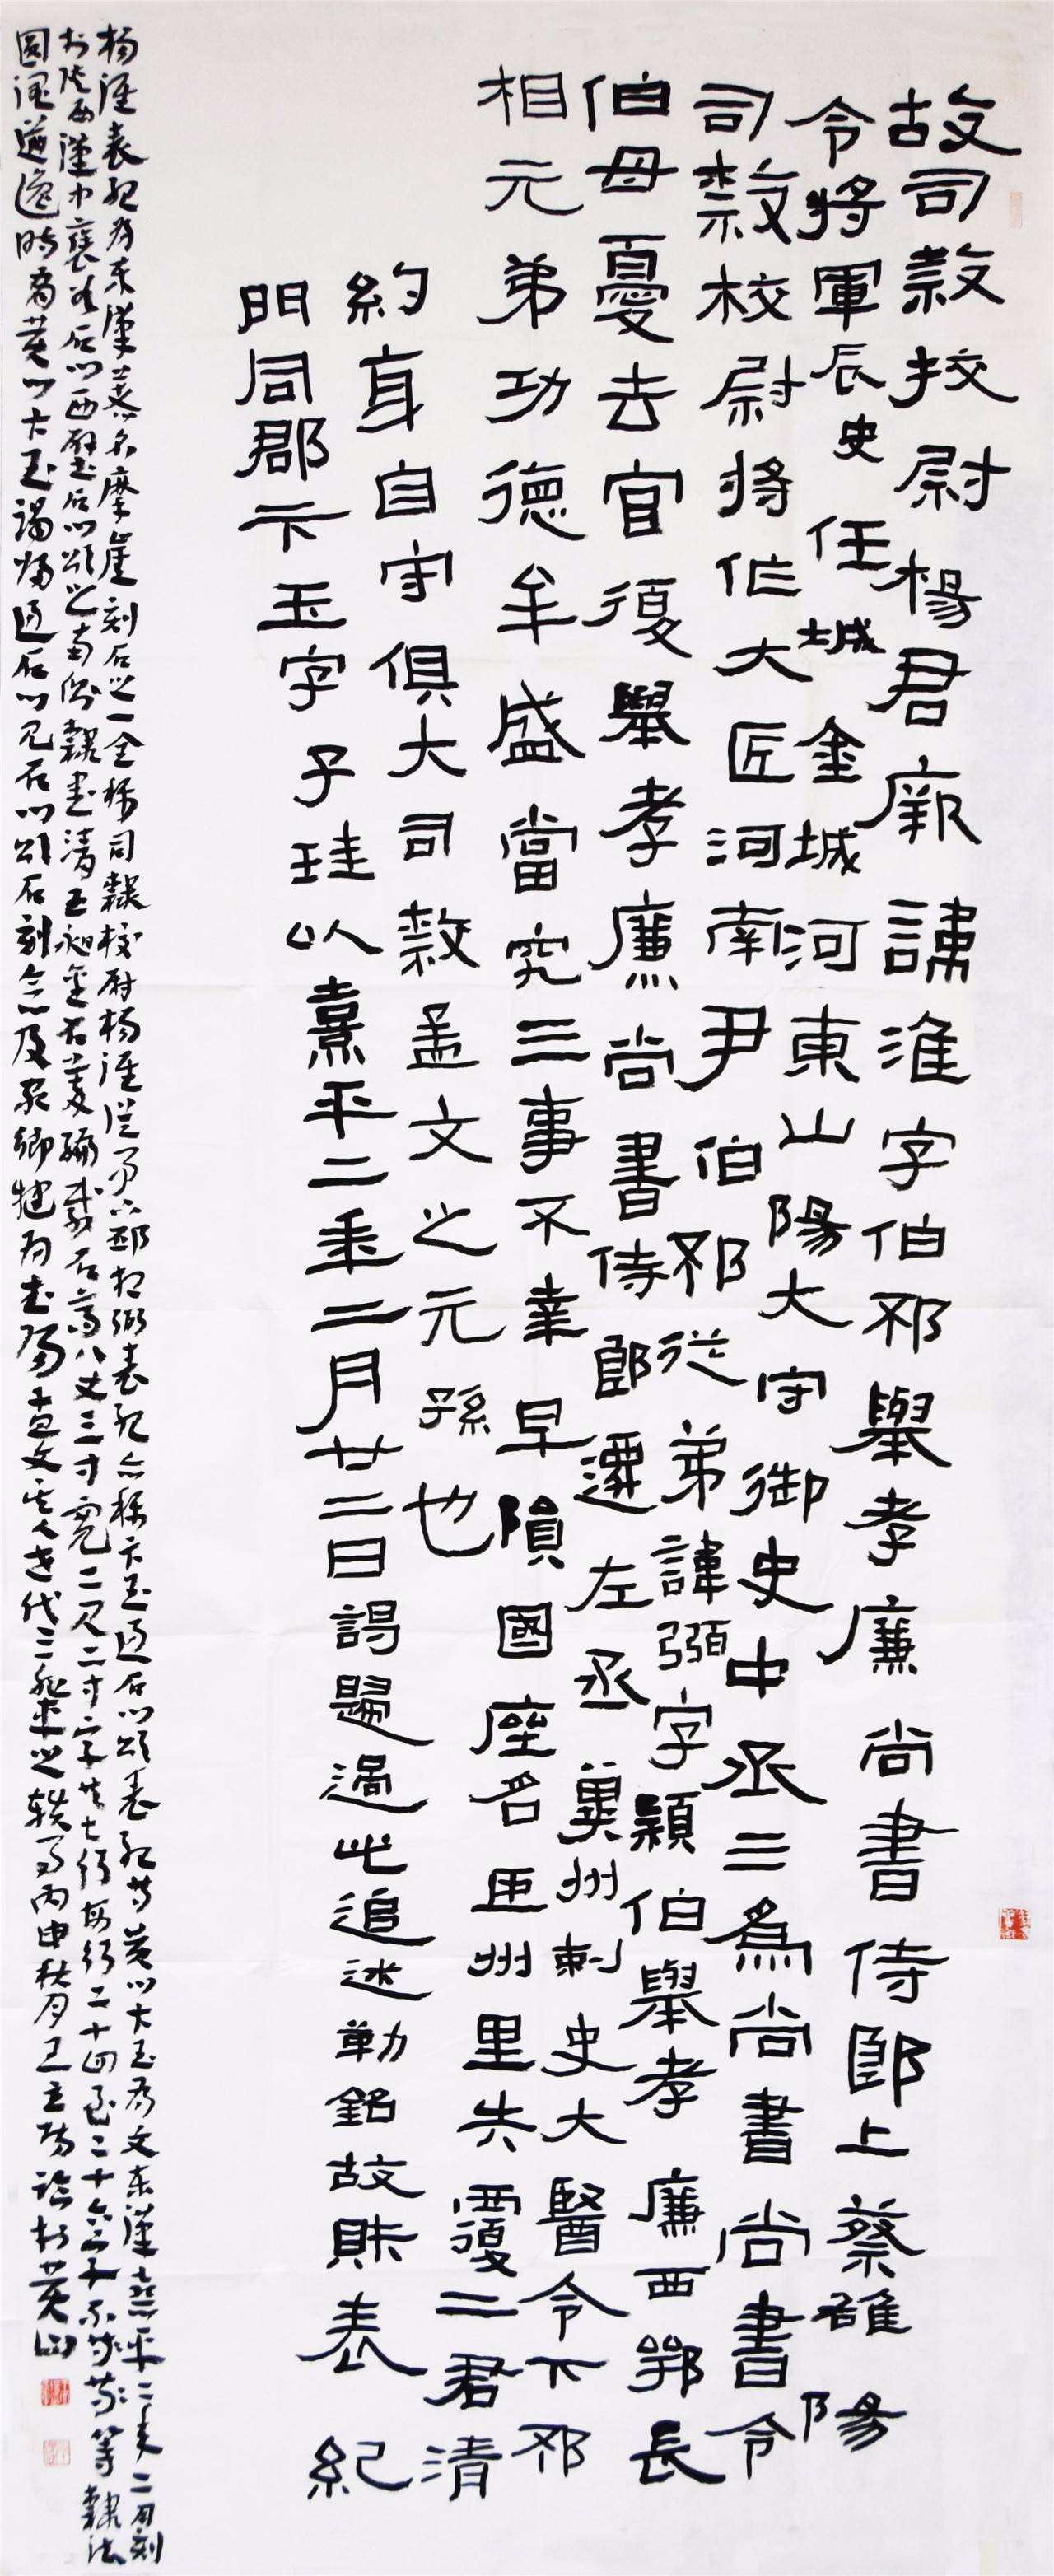 故司隸挍尉楊君厥諱淮字伯邳舉孝廉尚書侍郎上蔡雒陽
令將軍長史任城金城河東山陽大守御史中丞三為尚書尚書令
司隸校尉將作大匠河南尹伯邳從弟諱弼字穎伯舉孝廉西鄂長
伯母憂去官復舉孝廉尚書侍郎遷左丞冀州刺史大醫令下邳
相元弟功德牟盛當究三事不幸早隕國喪名臣州里失覆二君清
約身自守俱大司隸孟文之元孫也
門同郡卞玉字子珪以熹平二年二月廿二日謁歸過此追述勒銘故財表紀
楊淮表紀为東漢著名摩崖刻石之一全稱司隸校尉楊淮從事下邳相弼表紀亦稱卞玉過石门頌表紀黄门卞玉为文東漢熹平二年二月刻
於陕西漢中褒斜石门西壁石门頌之南側隸書清王昶金石萃編載石高八丈三寸寬二尺二寸字共七行每行二十四至二十六字不等隸法
圓渾遒逸時有黄门卞玉謁歸過石门见石门頌石刻念及犍为武陽世代三之轶事丙申秋月王立於黄山